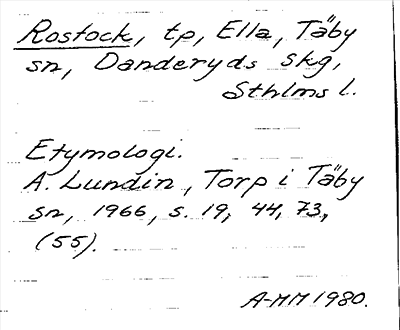 Rostock, tp, Ella, Täby
sn, Danderyds skg,
Sthlms l.
Etymologi.
A. Lundin, Torp i Täby
sn, 1966, s. 19, 44, 73,
(55).
A-MM 1980.